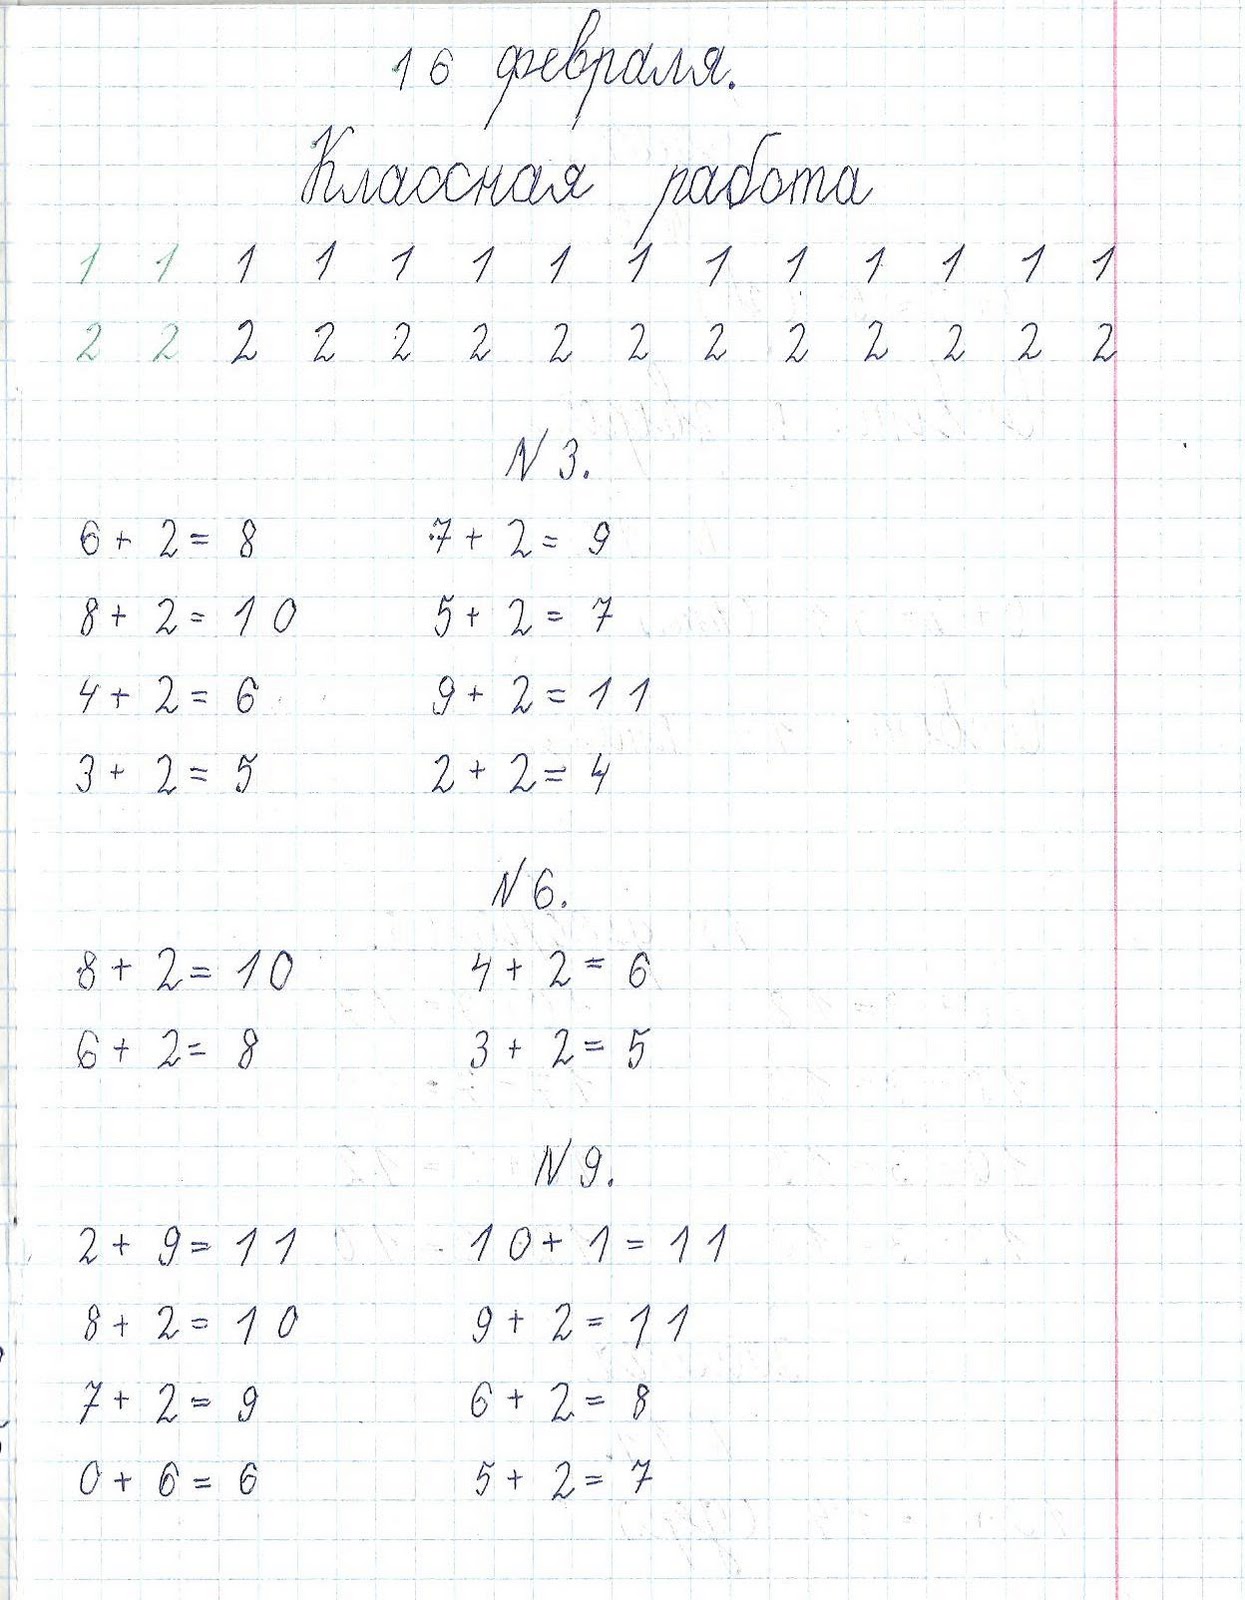 16 февраля.
Классная работа
1 1 1 1 1 1 1 1 1 1 1 1 1 1
2 2 2 2 2 2 2 2 2 2 2 2 2 2
N 3.
6 + 2 = 8 7 + 2 = 9
8 + 2 = 10 5 + 2 = 7
4 + 2 = 6 9 + 2 = 11
3 + 2 = 5 2 + 2 = 4
N 6.
8 + 2 = 10 4 + 2 = 6
6 + 2 = 8 3 + 2 = 5
N 9.
2 + 9 = 11 10 + 1 = 11
8 + 2 = 10 9 + 2 = 11
7 + 2 = 9 6 + 2 = 8
0 + 6 = 6 5 + 2 = 7